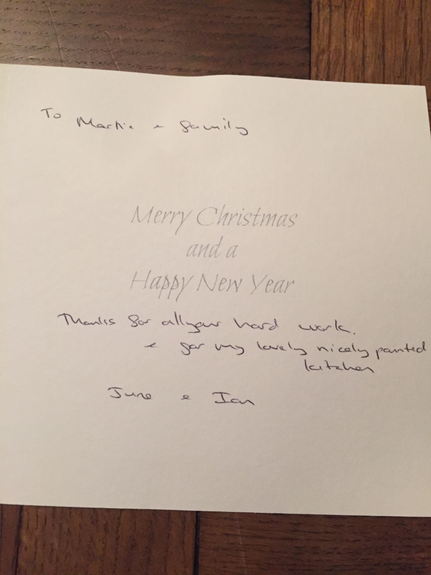 To Martin & family
Merry Christmas
and a
Happy New Year
Thanks for all your hard work.
& for my lovely nicely painted
kitchen
June & Ian